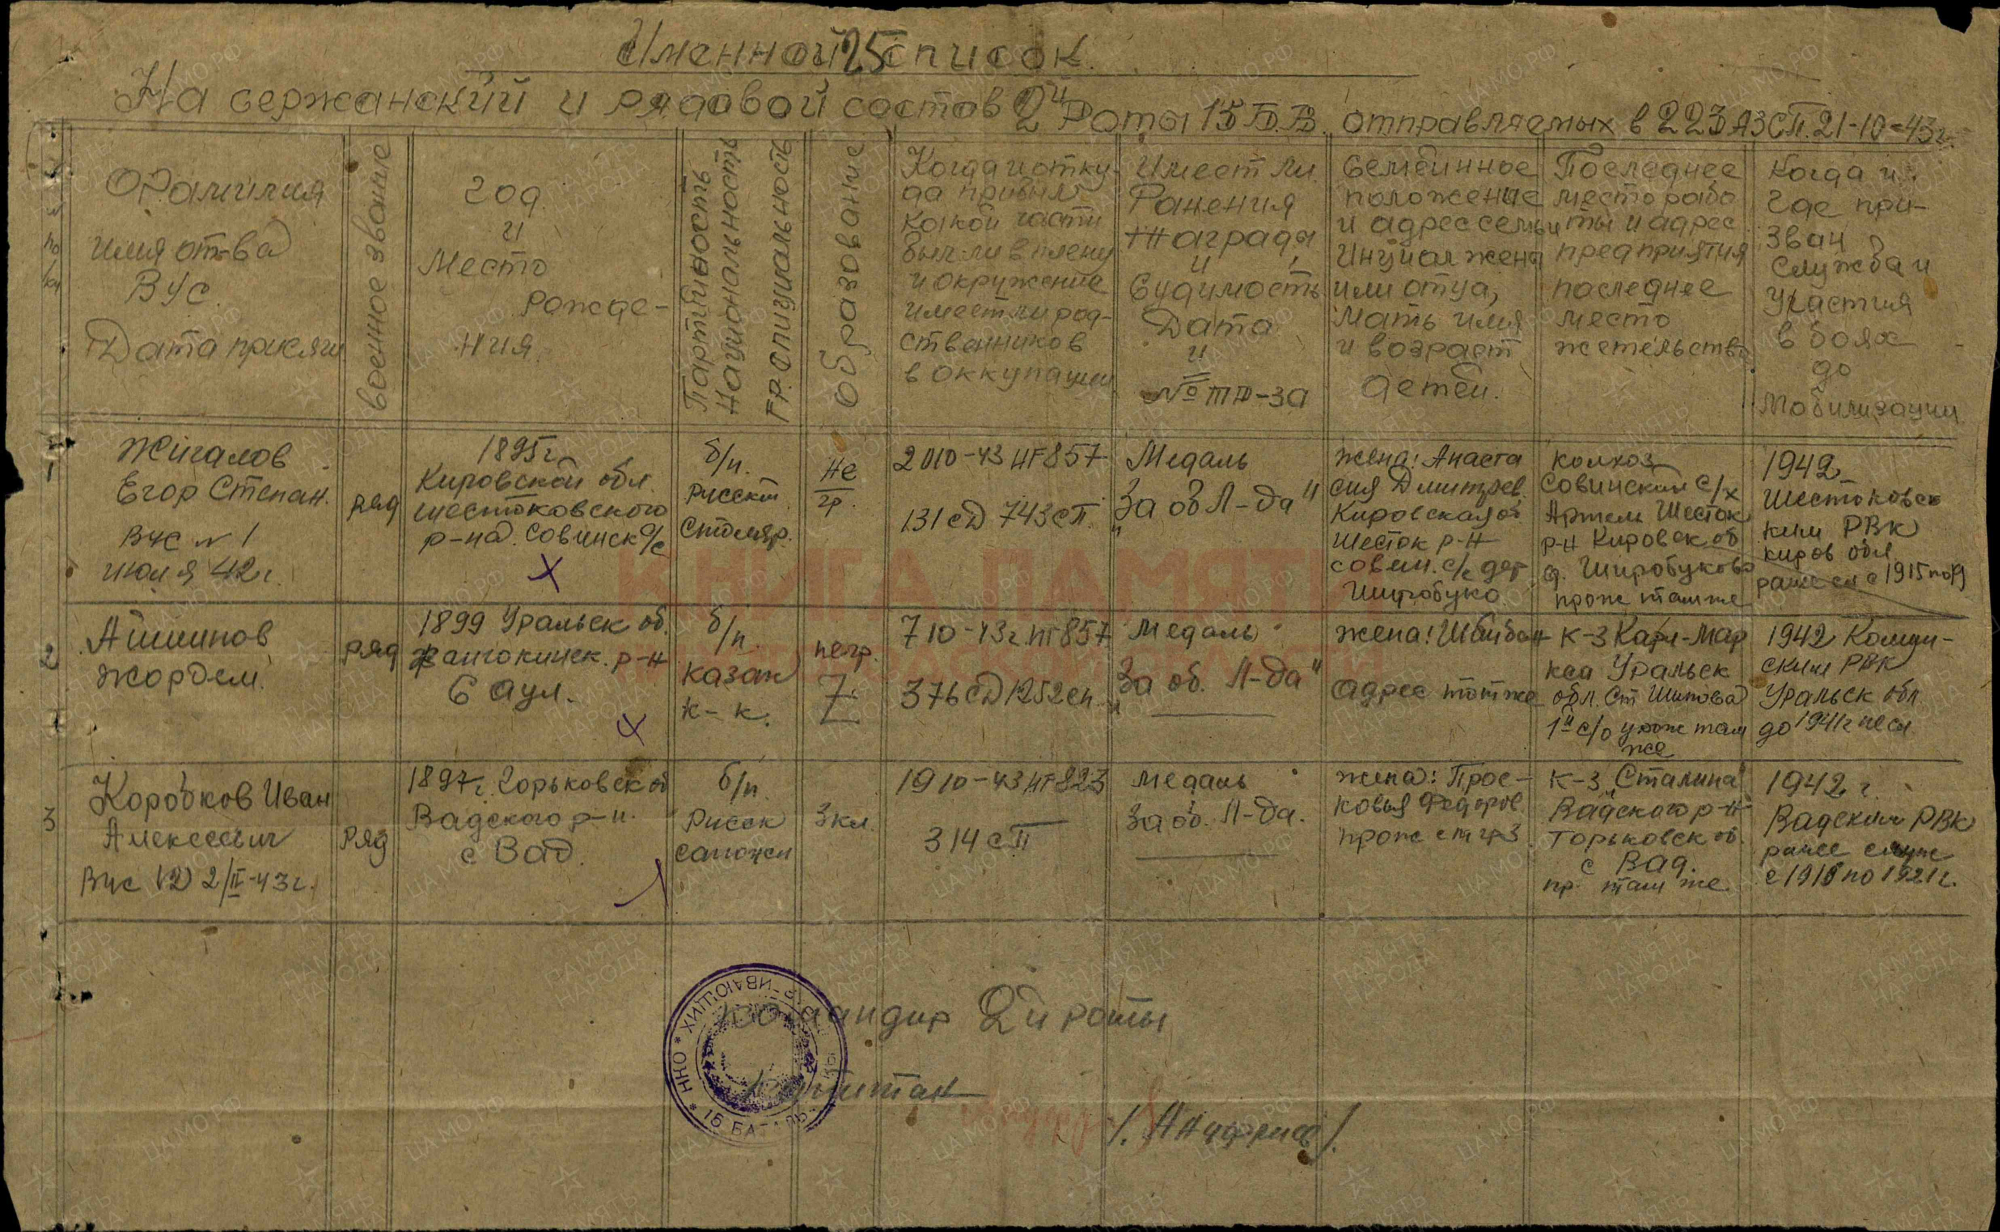 Именной список
25
На сержанский и рядовой состав 2й Роты 15 Б.В. отправляемых в 223 АЗСП. 21-10-43г.
Фамилия
имя от-ва
ВУС.
Дата присяги
военное звание
год
и
Место
рожде-
ния.
Партийность
Национальность
гр. специальность
Образование
Когда и отку-
да прибыл
какой части
был ли в плену
и окружение
имеет ли род-
ственников
в оккупации
Имеет ли
Ранения
награды
и
Судимость
Дата
и
№
Семейнное
положение
и адрес семьи
или отца,
мать имя
и возраст
детей.
Последнее
место рабо
ты и адрес
предприятия
последнее
место
жетельства
Когда и
где при-
зван
служба и
участия
в боях
до
мобилизации
1
Жигалов
Егор Степан.
ВУС № 1
июля 42г.
ряд
1895г
Кировской обл.
Шестоковского
р-на. Совинск с/с
б/п.
Русский
Столяр.
Не
гр.
20 10-43 НГ857
131 сД 743 сП.
Медаль
"За об Л-да"
жена: Анаста
сия Дмитрев.
Кировская об
Шесток р-н
совин. с/с дер
Широбуко
колхоз
Совинский с/х
Артель Шесток
р-н Кировск об
д. Широбуково
прож там же
1942
Шестоковс
ким РВК
киров обл
2
Айшинов
Жордем.
ряд
1899 Уральск об.
р-н
6 аул.
б/п.
казах
к-к.
негр.
7
7 10-43г. НГ857
376 сД 1252 сп.
Медаль
"За об. Л-да"
жена:
адрес тот же
К-з Карл-Мар
кса Уральск
обл. Ст Шипова
1й с/о прож там
же
1942
ским РВК
Уральск обл.
до 1941г
3
Коробков Иван
Алексеевич
Вус 12 2/II-43г.
ряд
1897г. Горьковск об
Вадского р-н.
с Вад.
б/п
Русск
сапожн
3 кл.
19 10-43 НГ 823
314 сП
Медаль
За об. Л-да.
жена: Прос-
ковья Федоров.
прож см гр 3
К-з "Сталина"
Вадского р-н
Горьковск об.
с Вад.
пр. там же
1942 г.
Вадским РВК
ранее служ
с 1918 по 1921г.
Командир 2й роты
Капитан
НКО * 15 БАТАЛЬ
КНИГА ПАМЯТИ
ПАМЯТЬ НАРОДА
ЦАМО.РФ